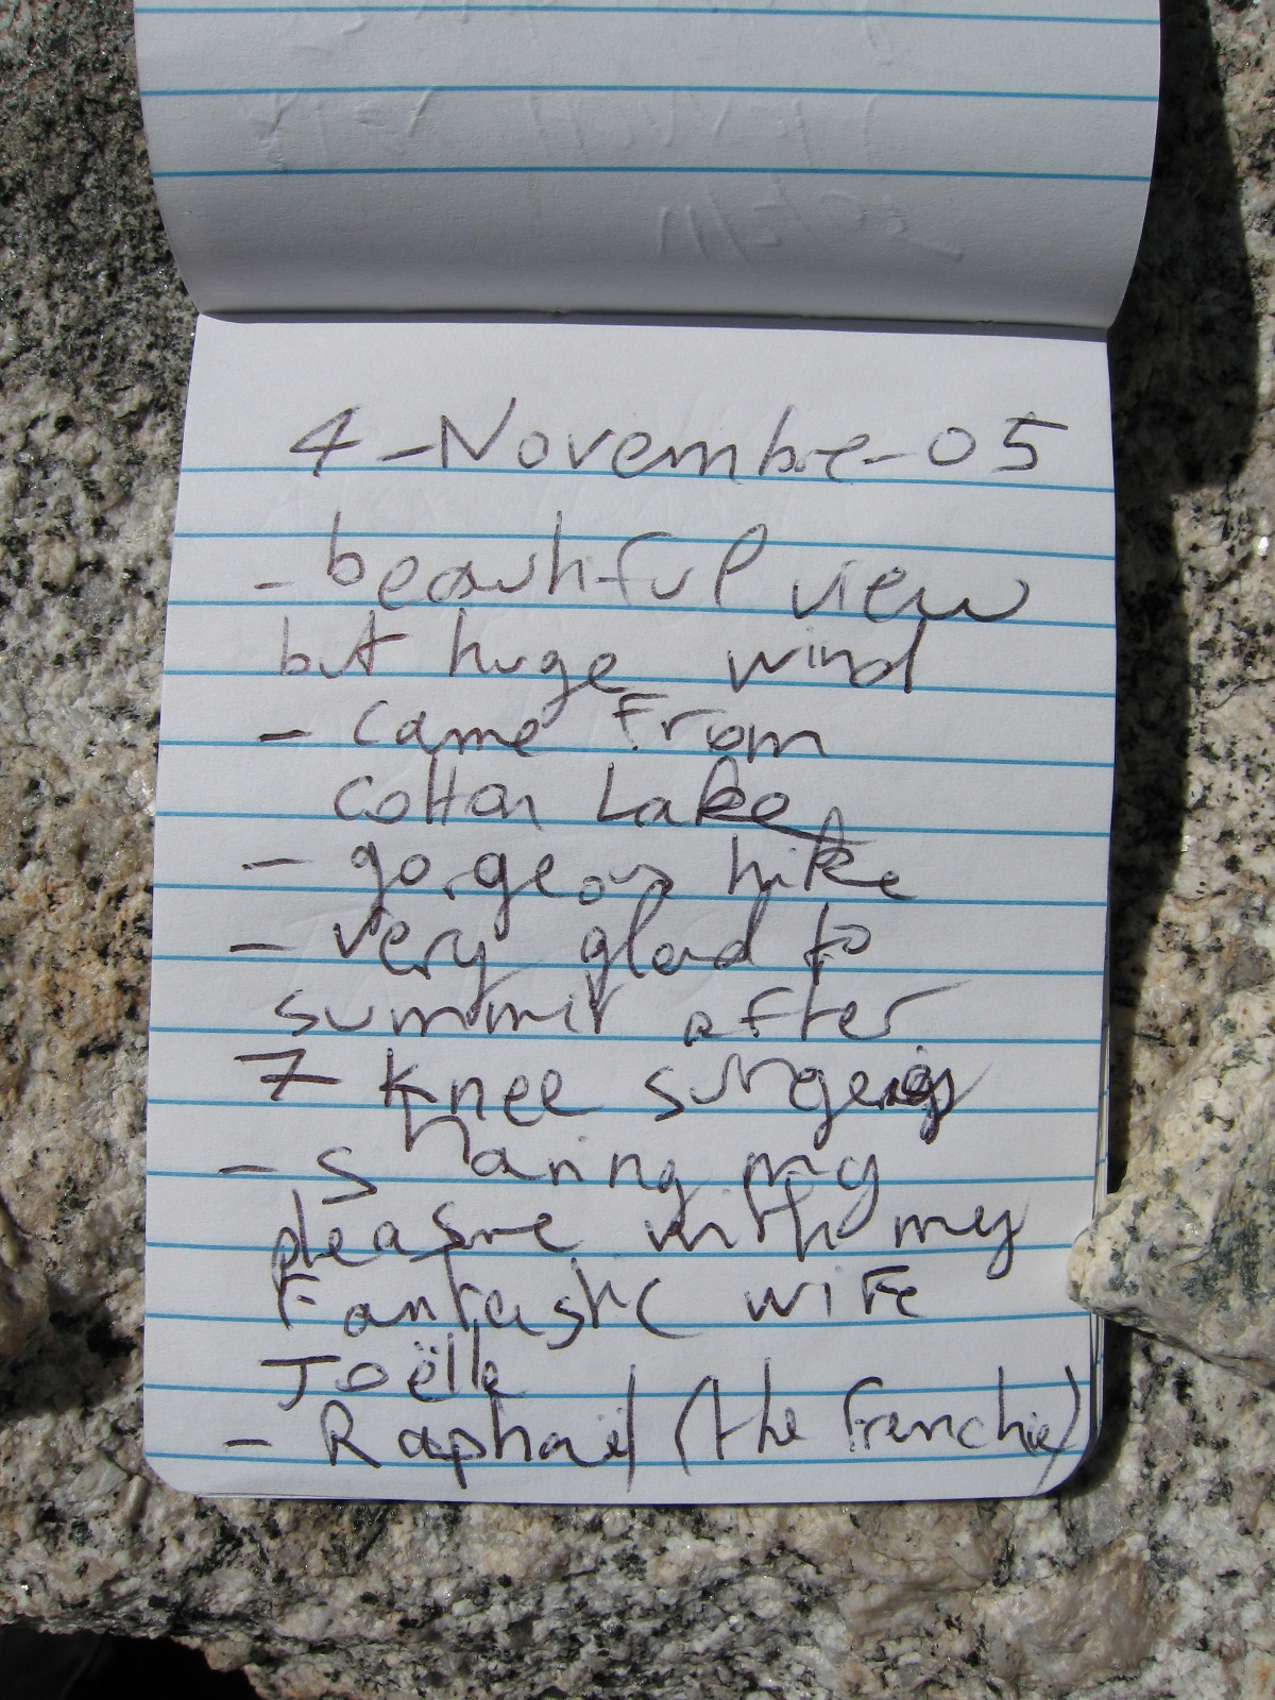 4-Novembre-05
- beautiful view
but huge wind
- came from
Cotton Lake
- gorgeous hike
- very glad to
summit after
7 knee surgeries
- sharing my
pleasure with my
Fantastic wife
Joëlle
- Raphaël (the Frenchie)